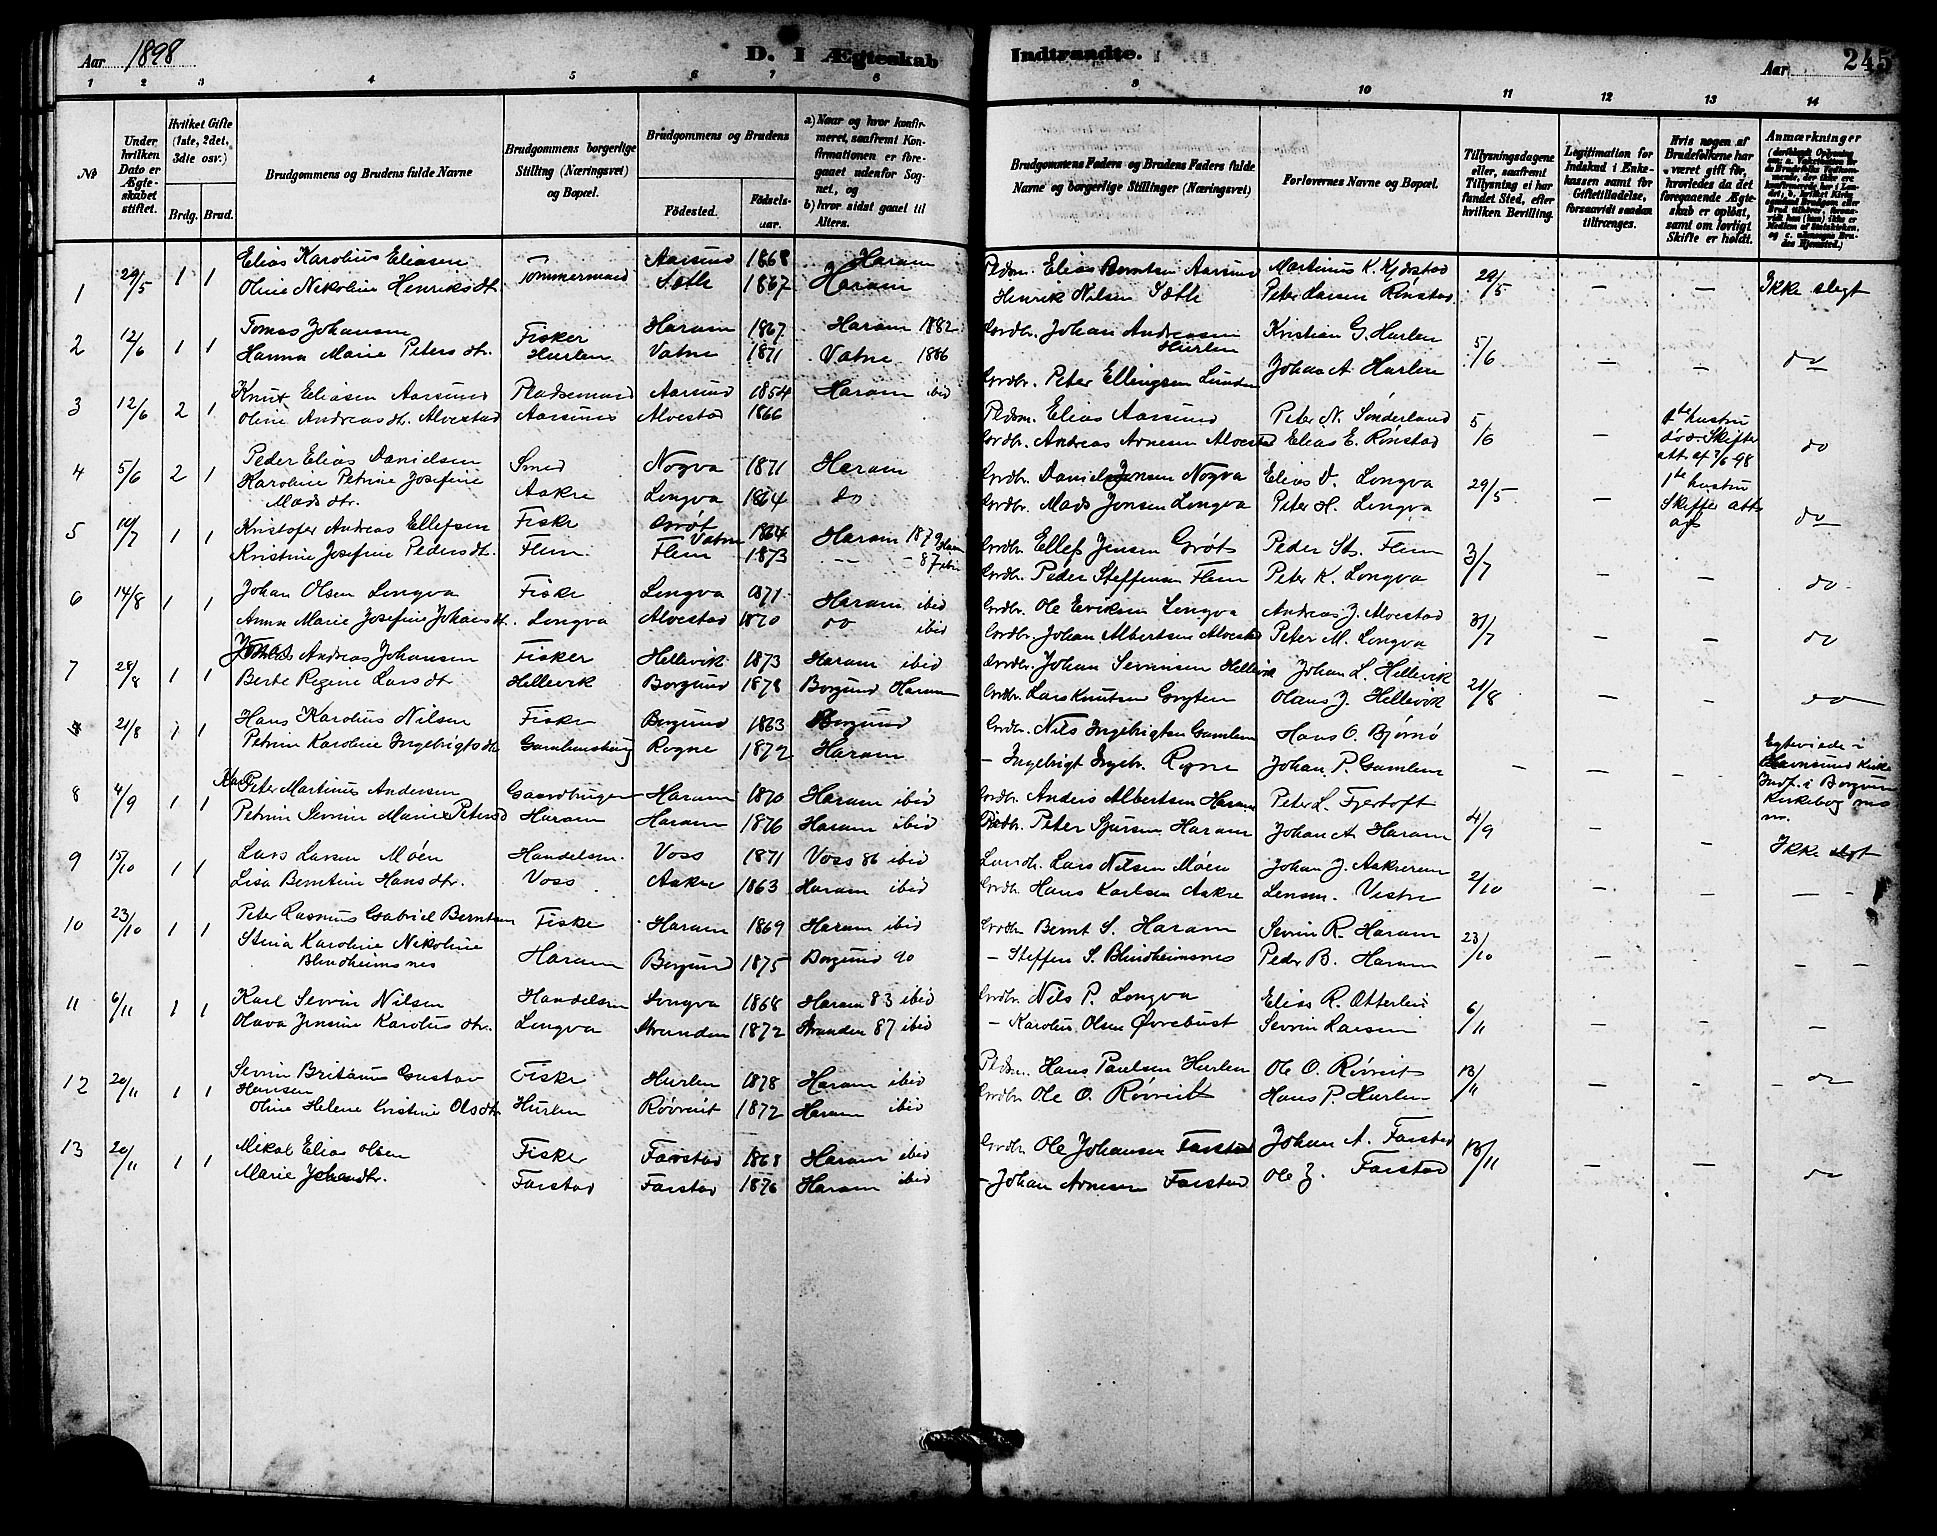 Aar 1898
D. I Ægteskab Indtraadte.
Aar 245
1 2 3 4 5 6 7 8 9 10 11 12 13 14
No
Under hvilken Dato er Ægteskabet stiftet.
Hvilket Gifte (1ste, 2det, 3die osv.)
Brdg. Brud.
Brudgommens og Brudens fulde Navne
Brudgommens borgerlige Stilling (Næringsvei) og Bopæl.
Brudgommens og Brudens
Fødested. Fødselsaar.
a) Naar og hvor konfirmeret, saafremt Konfirmationen er foregaaet udenfor Sognet, og
b) hvor sidst gaaet til Alters.
Brudgommens Faders og Brudens Faders fulde Navne og borgerlige Stillinger (Næringsvei)
Forlovernes Navne og Bopæl.
Tillysningsdagene eller, saafremt Tillysning ei har fundet Sted, efter hvilken Bevilling.
Legitimation for Indskud i Enkekassen samt for Giftetilladelse, forsaavidt saadan tiltrænges.
Hvis nogen af Brudefolkene har været gift før, hvorledes da det foregaaende Ægteskab er opløst, samt om lovligt Skifte er holdt.
Anmærkninger
1 29/5 1 1 Elias Karolius Eliasen Tømmermand Aarsund 1868 Haram Pldsm. Elias Berntsen Aarsund Martinus K. Kjerstad 29/5 — — Ikke slegt
Oline Nikoline Henriksdt. Sæth 1867 Haram Henrik Nilsen Sæth Peter Larsen Rønstad
2 12/6 1 1 Tomas Johansen Fisker Haram 1867 Haram 1882 Grdbr. Johan Andreasen Hurlen Kristian G. Hurlen 5/6 — — do
Hanna Marie Petersdtr. Hurlen Vatne 1871 Vatne 1886 Grdbr. Peter Ellingsen Johan A. Hurlen
3 12/6 2 1 Knut Eliasen Aarsund Pladsemand Aarsund 1854 Haram ibid Pldsm. Elias Aarsund Peter N. Sønderland 5/6 — 1ste hustru død. Skifteatt. af 7/6 98 do
Oline Andreasdtr. Alvestad Aarsund Alvestad 1866 Grdbr. Andreas Arnesen Alvestad Elias E. Rønstad
4 5/6 2 1 Peder Elias Danielsen Smed Nogva 1871 Haram Grdbr. Daniel Jensen Nogva Elias D. Longva 29/5 — 1ste hustru Skifteatt. af do
Karoline Petrine Josefine Madsdtr. Askre Longva 1864 do Grdbr. Mads Jonsen Longva Peter H. Longva
5 10/7 1 1 Kristofer Andreas Ellefsen Fisker Grøt Vatne 1864 Haram 1879 Grdbr. Ellef Jensen Grøt Peder St. Flem 3/7 — — do
Kristine Josefine Pedersdt. Flem Flem 1873 — - 87 Grdbr. Peder Steffensen Flem Peter K. Longva
6 14/8 1 1 Johan Olsen Longva Fisker Longva 1871 Haram ibid Grdbr. Ole Eriksen Longva Andreas J. Alvestad 31/7 — — do
Anna Marie Josefine Johansdt. Longva Alvestad 1870 do ibid Grdbr. Johan Albertsen Alvestad Peter M. Longva
7 28/8 1 1 Andreas Johansen Fisker Hellevik 1873 Haram ibid Grdbr. Johan Sevrinsen Hellevik Johan L. Hellevik 21/8 — — do
Berte Regine Larsdtr. Hellevik Borgund 1878 Borgund Haram Grdbr. Lars Knutsen Gryten Olaus J. Hellevik
21/8 1 1 Hans Karolius Nilsen Fisker Borgund 1863 Borgund Grdbr. Nils Ingebrigtsen Gamlem Hans O. Bjørnø — — — Egteviede i Havnsund Kirke Indf. i Borgund Kirkebog
Petrine Karoline Ingebrigtsdtr. Rogne 1872 Haram — Ingebrigt Ingebr. Rogne Johan P. Gamlem
8 4/9 1 1 Peter Martinus Andersen Gaardbruger Haram 1870 Haram ibid Grdbr. Anders Albertsen Haram Peter L. Fjertoft 4/9 — — Ikke slegt
Petrine Sevrine Marie Petersd Haram Haram 1876 Haram ibid Peter Sjursen Haram Johan A. Haram
9 15/10 1 1 Lars Larsen Møen Handelsm. Voss 1871 Voss 86 ibid Lars Nilsen Møen Johan J. Askrerem 2/10 — — —
Lisa Berntine Hansdtr. Voss Askre 1863 Haram ibid Grdbr. Hans Karlsen Askre Lensm. Vestre
10 23/10 1 1 Peter Rasmus Gabriel Berntsen Fisker Haram 1869 Haram ibid Grdbr. Bernt S. Haram Sevrin R. Haram 23/10 — — —
Stina Karoline Nikoline Blindheimsnes Haram Borgund 1875 Borgund 90 — Steffen S. Blindheimsnes Peder B. Haram
11 6/11 1 1 Karl Sevrin Nilsen Handelsm Longva 1868 Haram 83 ibid Grdbr. Nils P. Longva Elias R. Otterlei 6/11 — — —
Olava Jensine Karolusdtr. Longva Stranden 1872 Stranden 87 ibid — Karolus Olsen Øvrebust Sevrin Larsen
12 20/11 1 1 Sevrin Gustav Hansen Fisker Hurlen 1878 Haram ibid Pldsm. Hans Paulsen Hurlen Ole O. Røvreit 13/11 — — do
Oline Helene Kristine Olsdtr. Hurlen Røvreit 1872 Haram ibid Grdbr. Ole O. Røvreit Hans P. Hurlen
13 20/11 1 1 Mikal Elias Olsen Fisker Farstad 1868 Haram ibid Grdbr. Ole Johansen Farstad Johan A. Farstad 13/11 — — do
Marie Johandtr. Farstad Farstad 1876 Haram ibid — Johan Arnesen Farstad Ole J. Farstad